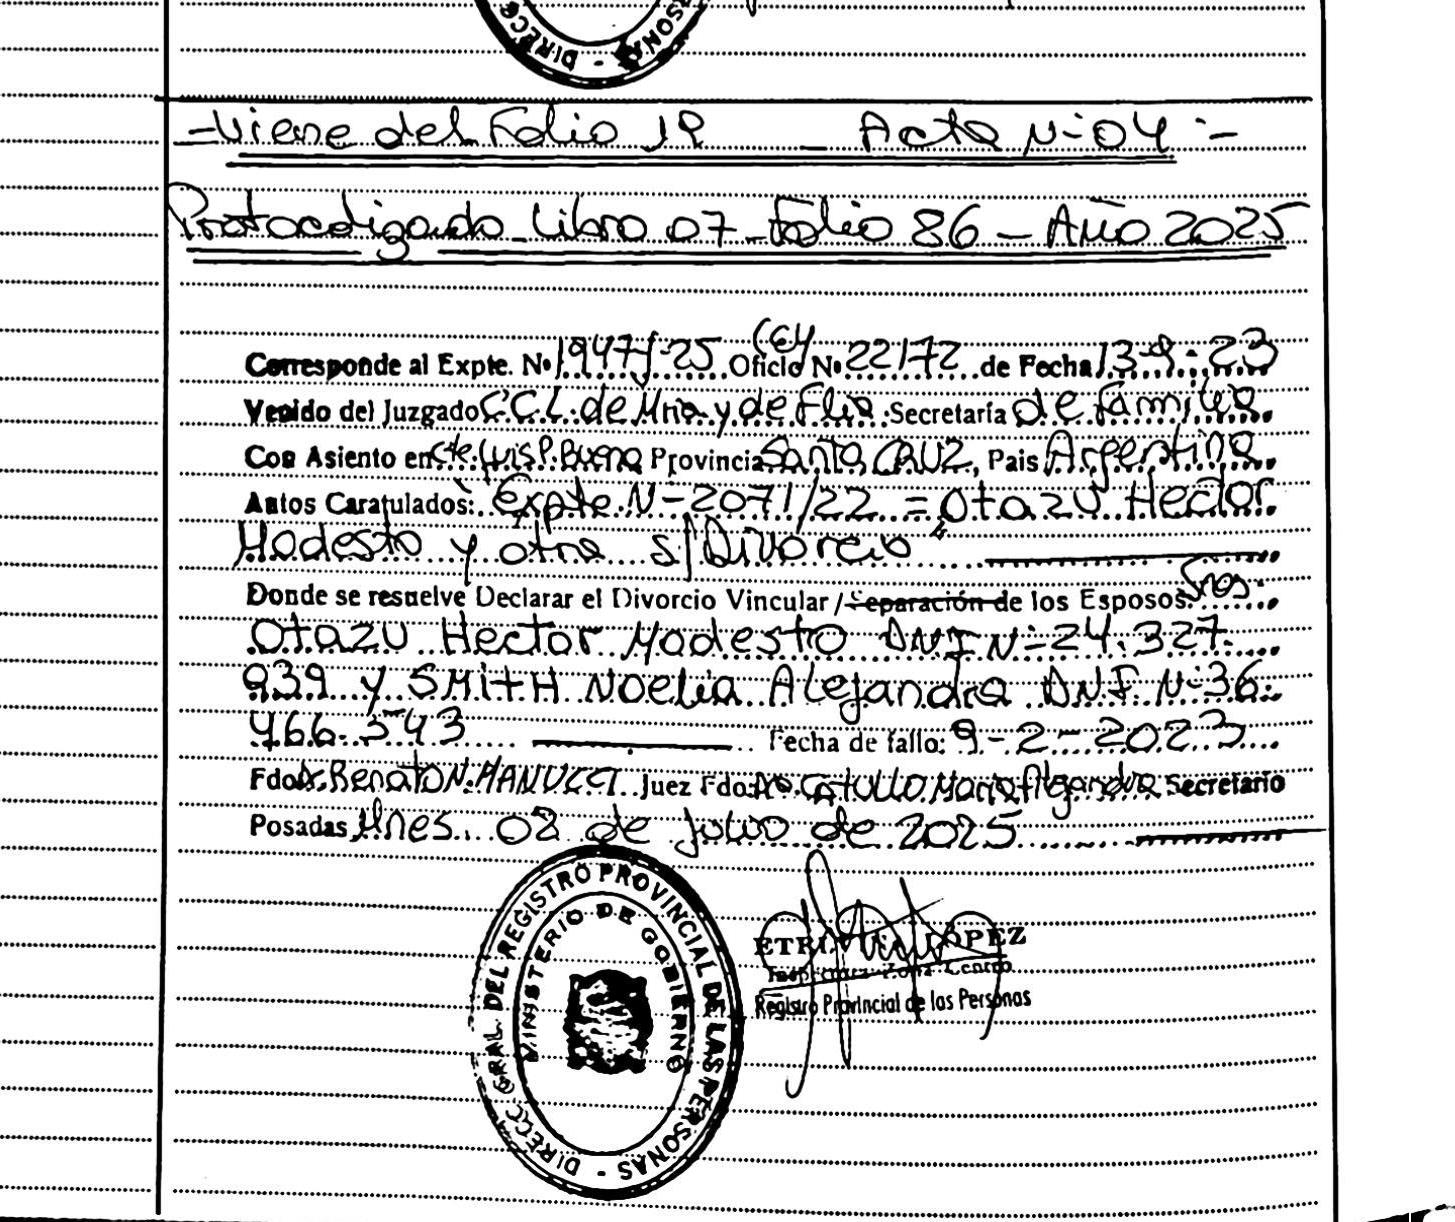 DIRECC SONAS -
- Viene del Folio 19 - Acta Nº 04 -
Protocolizado Libro 07 - Folio 86 - Año 2025
Corresponde al Expte. Nº 1947/25 Oficio Nº 22172 de Fecha 13-9-23
Venido del Juzgado C.C.L. de Mria y de Flia Secretaría de Familia
Con Asiento en Cte. Luis P. Buena Provincia Santa CRUZ, Pais Argentina
Autos Caratulados: "Expte Nº 2071/22 = Otazu Hector
Modesto y otra s/Divorcio"
Donde se resuelve Declarar el Divorcio Vincular / Separación de los Esposos: Sres.
Otazu Hector Modesto DNI Nº 24.327.
939 y SMitH Noelia Alejandra DNI Nº 36.
466.543 Fecha de fallo: 9-2-2023
Fdo: Dr. Renato N. MANUCCI Juez Fdo: Dra. CAtULLO Maria Alejandra Secretario
Posadas, Mnes. 02 de Julio de 2025
DIRECC. GRAL. DEL REGISTRO PROVINCIAL DE LAS PERSONAS -
MINISTERIO DE GOBIERNO
LOPEZ
Inspectora Zona Centro
Registro Provincial de las Personas